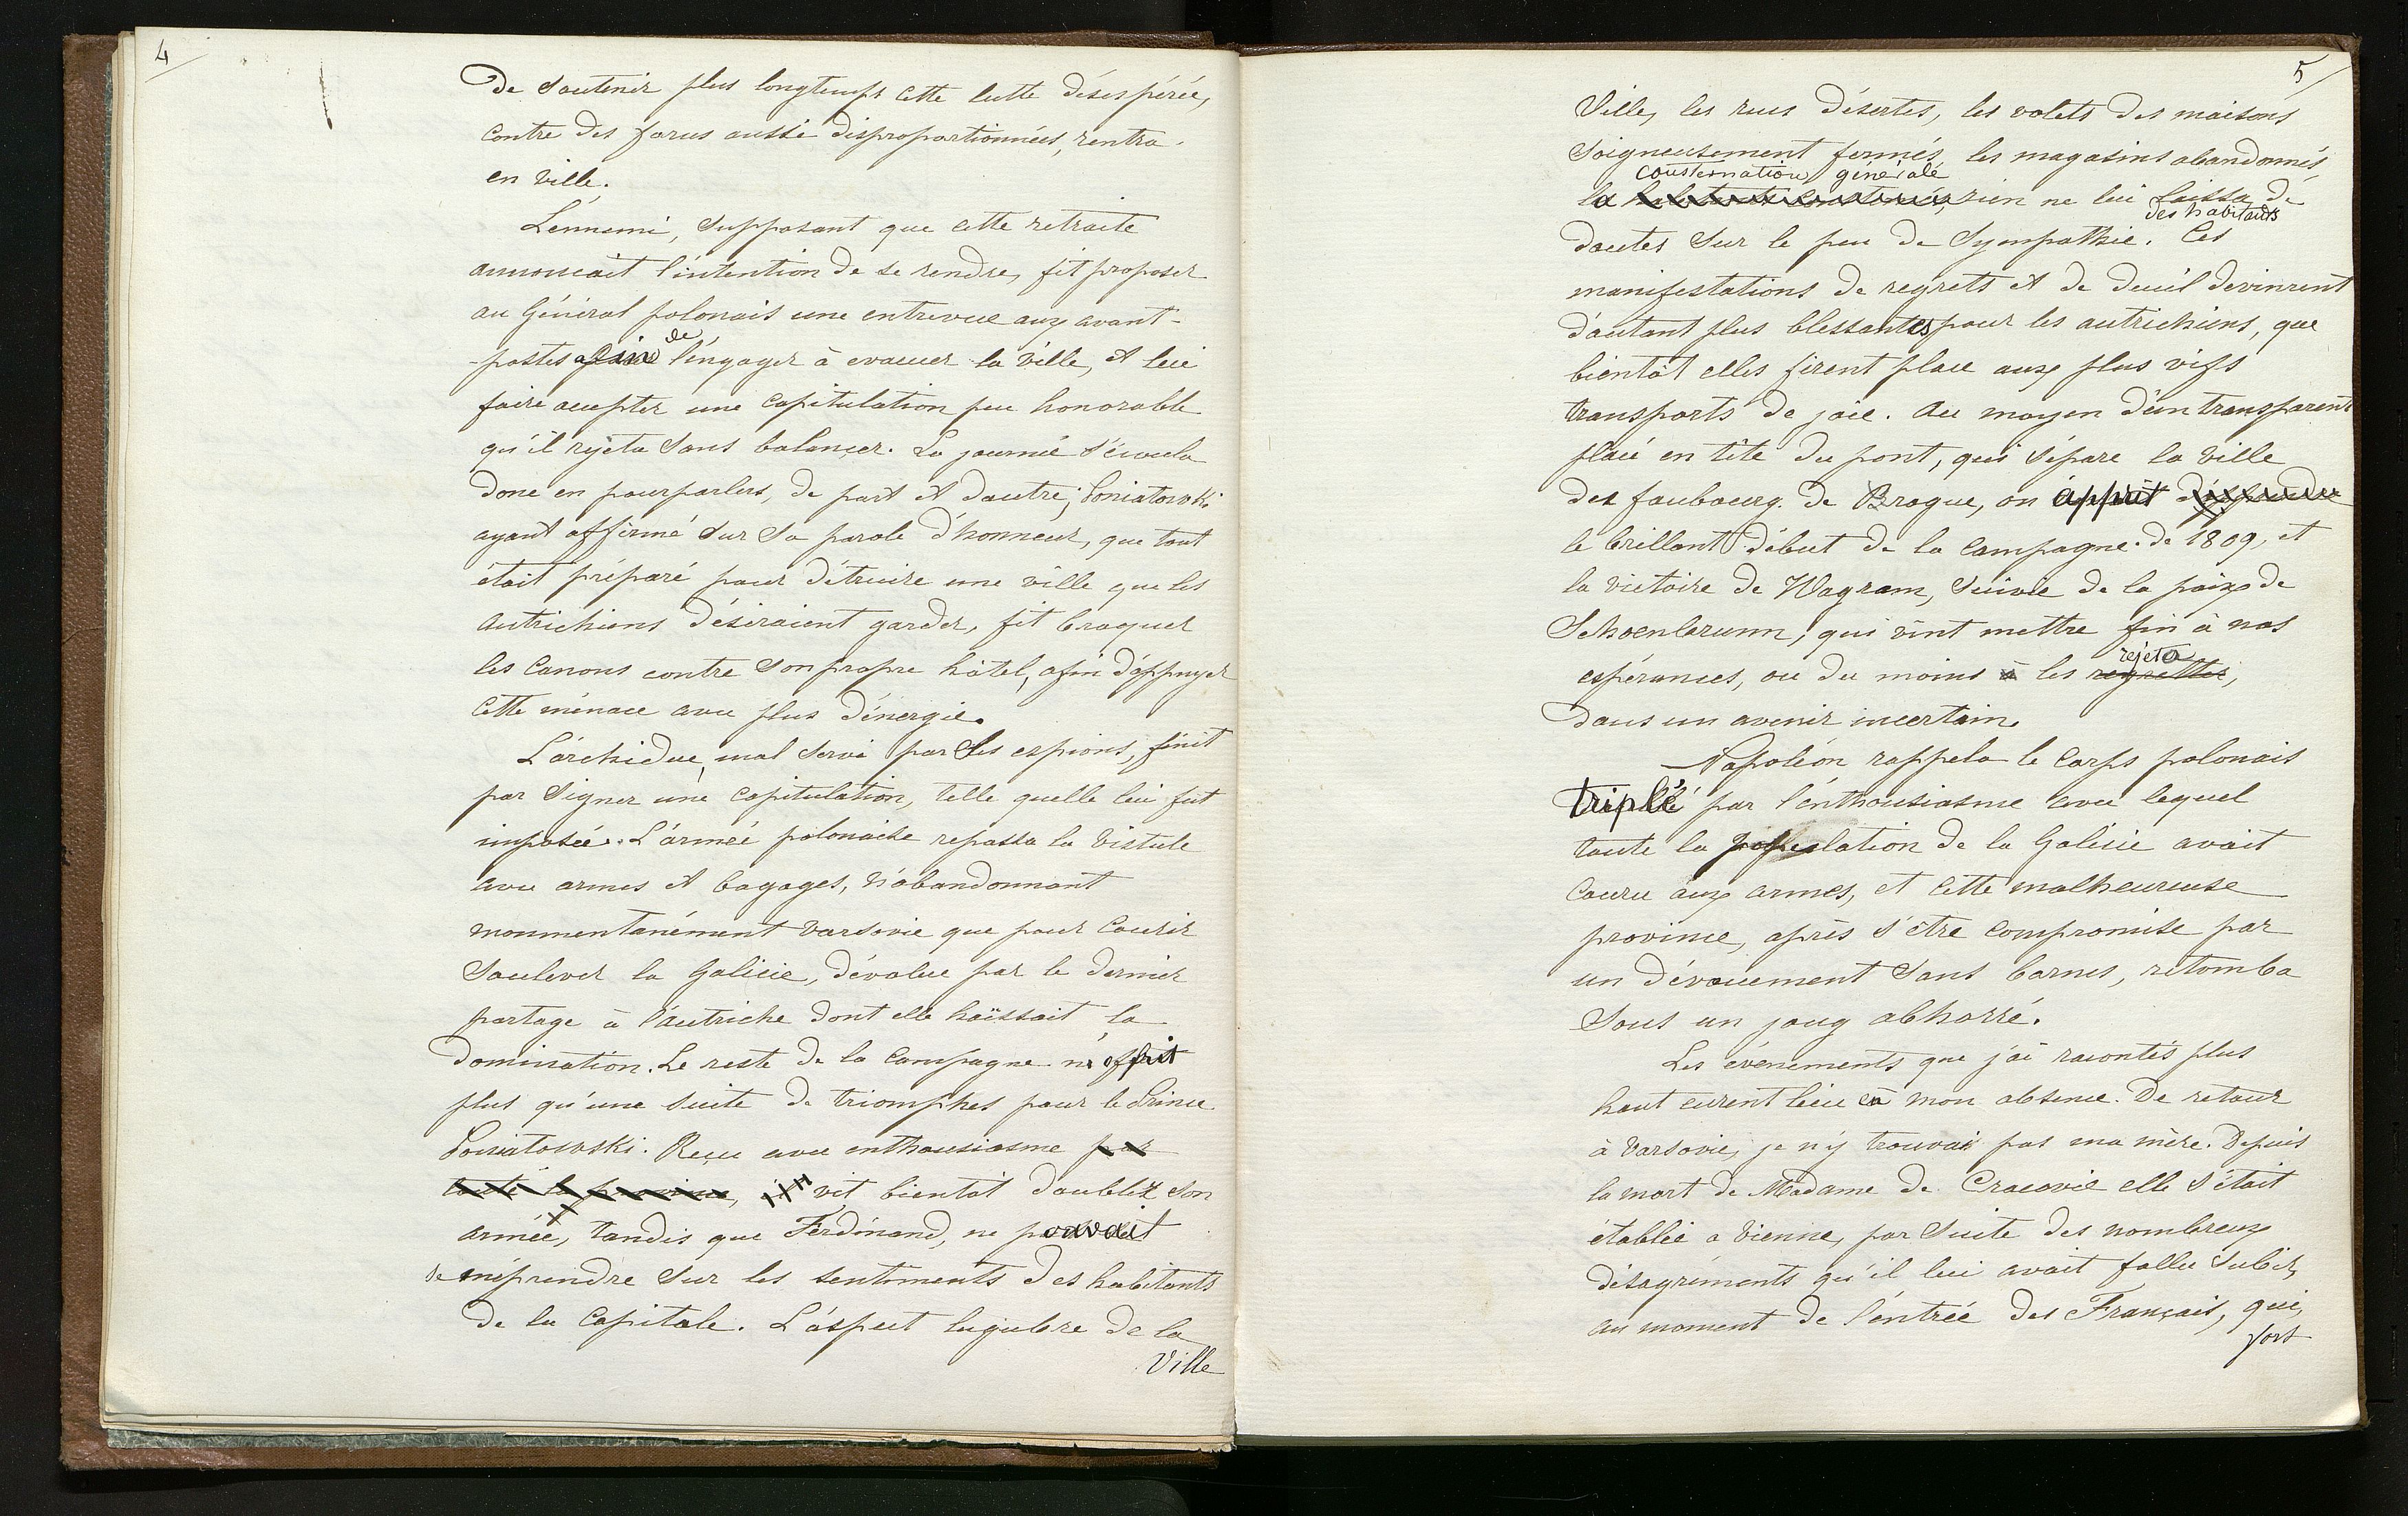 4
de soutenir plus longtemps cette lutte désespérée,
contre des forces aussi disproportionnées, rentra
en ville.
L'énnemi, supposant que cette retraite
annoncait l'intention de se rendre, fit proposer
au Général polonais une entrevue aux avant-
-postes afin de l'éngager à evacuer la ville, et lui
faire accepter une capitulation peu honorable
qu'il rejeta sans balançer. La journée s'écoula
donc en pourparlers, de part et d'autre; Poniatowski
ayant affirmé sur sa parole d'honneur, que tout
était préparé pour détruire une ville que les
autrichiens désiraient garder, fit braquer
les canons contre son propre hôtel, afin d'áppuyer
cette ménace avec plus d'énergie.
L'árchiduc, mal servi par ses espions, finit
par signer une capitulation, telle quelle lui fut
imposée. L'ármée polonaise repassa la Vistule
avec armes et bagages, n'abandonnant
monmentanément Varsovie que pour courir
soulever la Galicie, dévolue par le dernier
partage à l'áutriche dont elle haïssait la
domination. Le reste de la campagne n'offrit
plus qu'une suite de triomphes pour le Prince
Poniatowski. Reçu avec enthousiasme par
toute la province, il vit bientôt doubler son
armée, tandis que Ferdinand, ne pouvait
se méprendre sur les sentiments des habitants
de la Capitale. L'áspect lugubre de la
Ville
5
Ville, les rues désertes, les volets des maisons
soigneusement fermés, les magasins abandonnés,
consternation générale
la habitants consternés, rien ne lui laissa de
des habitants
doutes sur le peu de sympathie. Ces
manifestations de regrets et de deuil devinrent
d'autant plus blessantes pour les autrichiens, que
bientôt elles firent place aux plus vifs
transports de joie. Au moyen d'ún transparent
placé en tête du pont, qui sépare la ville
des faubourg de Brague, on apprit
le brillant début de la campagne de 1809, et
la victoire de Wagram, suivie de la paix de
Schoenbrunn, qui vint mettre fin à nos
rejeta
espérances, ou du moins à les regretter,
dans un avenir incertain.
Napoléon rappela le corps polonais
triplé par l'énthousiasme avec lequel
toute la population de la Galicie avait
couru aux armes, et cette malheureuse
province, après s'être compromise par
un dévouement sans bornes, retomba
sous un joug abhorré.
Les évenements que j'ái racontés plus
haut eurent lieu en mon absence. De retour
à Varsovie, je n'y trouvai pas ma mère. Depuis
la mort de Madame de Cracovie elle s'était
établie a Vienne, par suite des nombreux
désagréments qu'il lui avait fallu subir,
au moment de l'éntrée des Français, qui,
fort